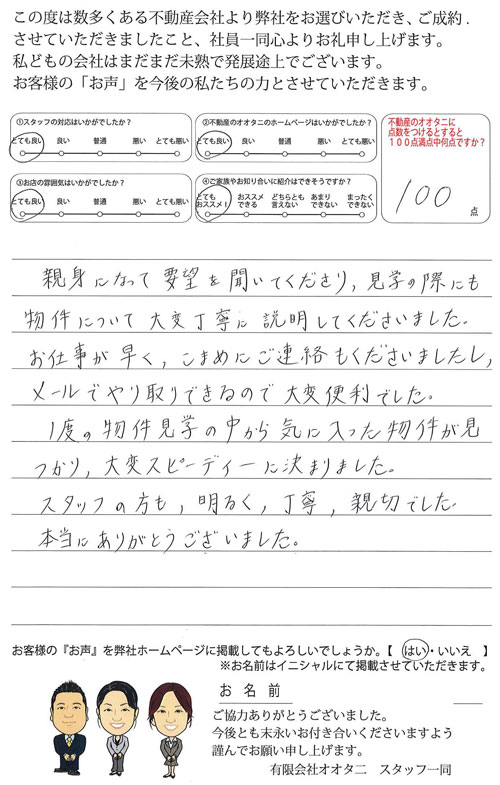 この度は数多くある不動産会社より弊社をお選びいただき、ご成約.
させていただきましたこと、社員一同心よりお礼申し上げます。
私どもの会社はまだまだ未熟で発展途上でございます。
お客様の「お声」を今後の私たちの力とさせていただきます。
①スタッフの対応はいかがでしたか？
とても良い 良い 普通 悪い とても悪い
②不動産のオオタニのホームページはいかがでしたか？
とても良い 良い 普通 悪い とても悪い
③お店の雰囲気はいかがでしたか？
とても良い 良い 普通 悪い とても悪い
④ご家族やお知り合いに紹介はできそうですか？
とても オススメ どちらとも あまり まったく
おススメ！ できる 言えない できない できない
不動産のオオタニに
点数をつけるとすると
１００点満点中何点ですか？
100
点
親身になって要望を聞いてくださり，見学の際にも
物件について大変丁寧に説明してくださいました.
お仕事が早く，こまめにご連絡もくださいましたし，
メールでやり取りできるので大変便利でした。
1度の物件見学の中から気に入った物件が見
つかり，大変スピーディーに決まりました。
スタッフの方も，明るく，丁寧，親切でした.
本当にありがとうございました。
お客様の『お声』を弊社ホームページに掲載してもよろしいでしょうか。【 はい・いいえ 】
※お名前はイニシャルにて掲載させていただきます。
お 名 前
ご協力ありがとうございました。
今後とも末永いお付き合いくださいますよう
謹んでお願い申し上げます。
有限会社オオタニ スタッフ一同